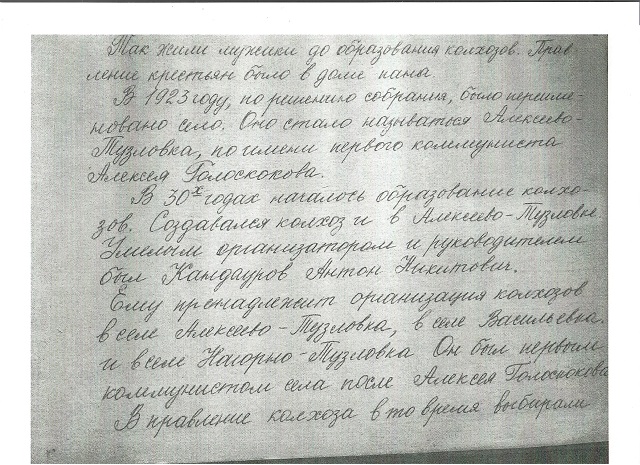 Так жили мужики до образования колхозов. Прав-
ление крестьян было в доме пана
В 1923 году, по решению собрания, было переиме-
новано село. Оно стало называться Алексеево-
Тузловка, по имени первого коммуниста
Алексея Голоскокова.
В 30х годах началось образование колхо-
зов. Создавался колхоз и в Алексеево-Тузловке.
Умелым организатором и руководителем
был Кандауров Антон Никитович.
Ему пренадлежит организация колхозов
в селе Алексеево-Тузловка, в селе Васильевка.
и в селе Нагорно-Тузловка Он был первым
коммунистом села после Алексея Голоскокова
В правление колхоза в то время выбирали